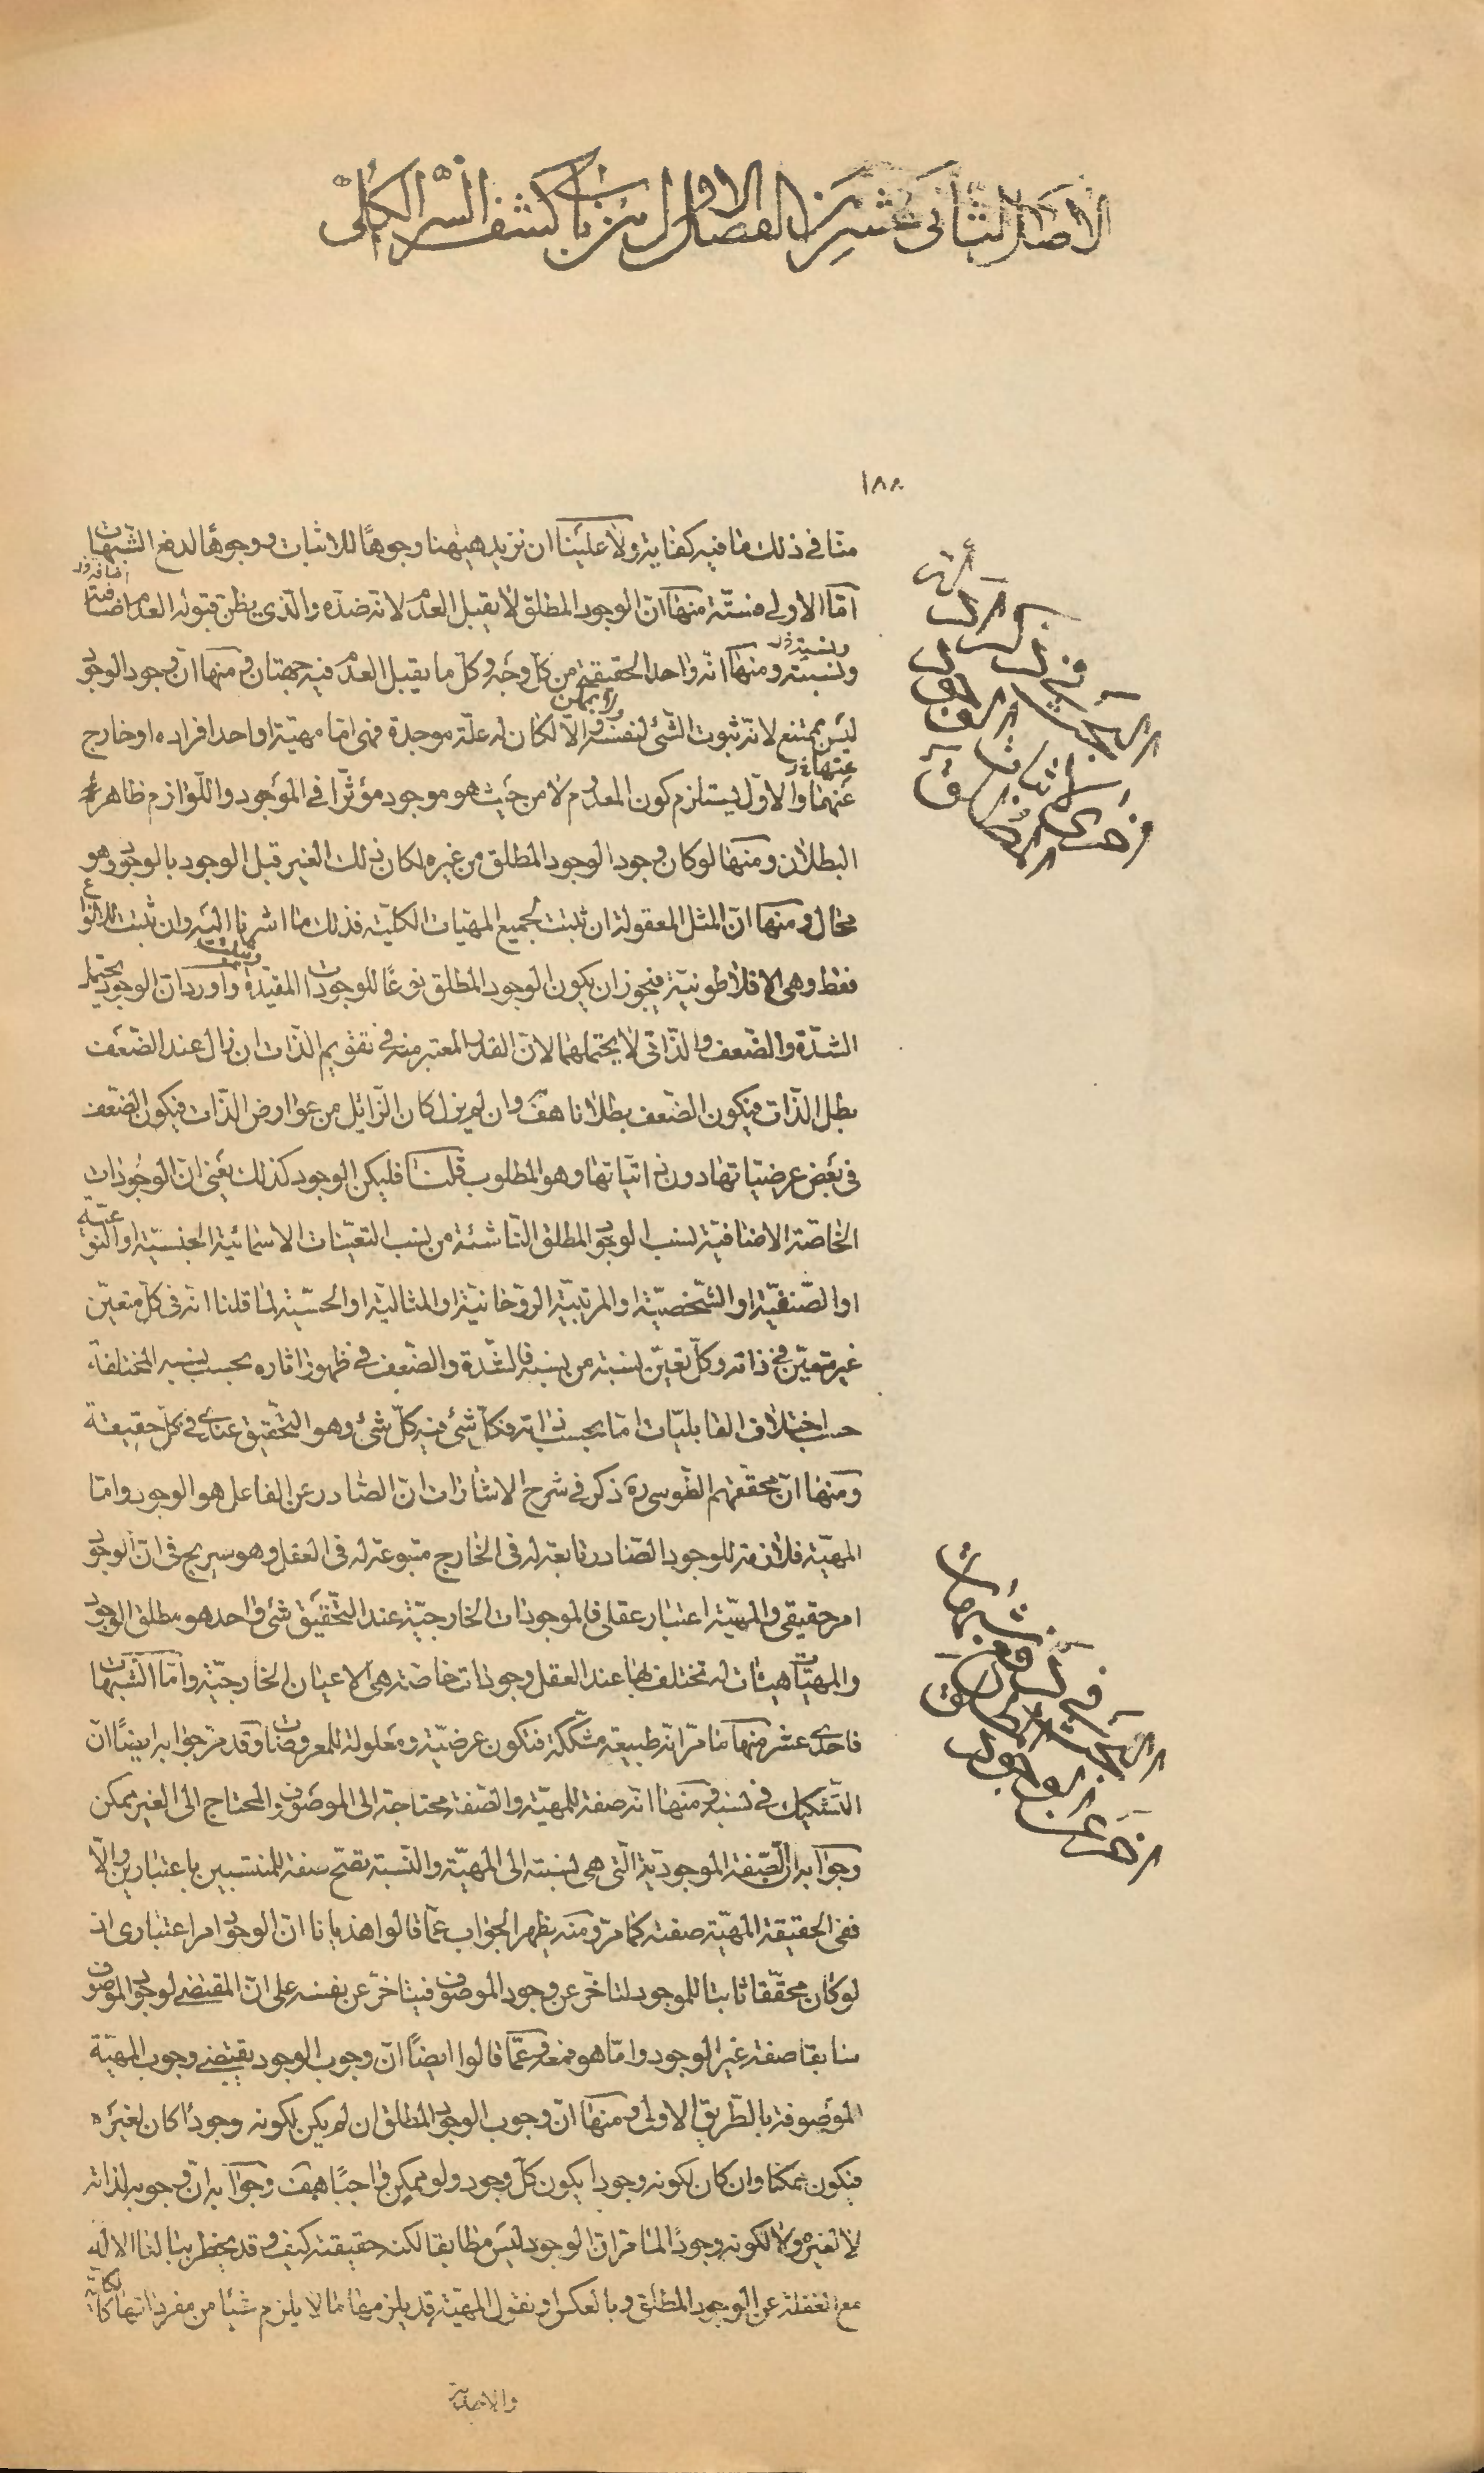 الاصل الثانى عشر من الفصل الاول من باب كشف السر الكلى
١٨٨
منا في ذلك ما فيه كفاية ولا علينا ان نزيد ههنا وجوهًا للاثبات ووجوهًا لدفع الشبهات
امّا الاولى فستّة منها انّ الوجود المطلق لا يقبل العدم لانه ضدّه والّذى يظن قبوله العدم اضافته
اضافة
ونسبته ومنها انّه واحد الحقيقة من كلّ وجه وكلّ ما يقبل العدم فيه جهتان ومنها انّ وجود الوجود
ونسبة
ليس بممتنع لانّه ثبوت الشّئ لنفسه والّا لكان له علّة موجدة فهى امّا مهيّة او احد افراده او خارج
ولا بممكن
عنهما والاوّل يستلزم كون المعدوم لا من حيث هو موجود مؤثّرا في الموجود واللّوازم ظاهرة
عنها
البطلان ومنها لو كان وجود الوجود المطلق من غيره لكان ذلك الغير قبل الوجود بالوجود وهو
محال ومنها انّ المثل المعقولة ان ثبتت لجميع المهيّات الكلّيّة فذلك ما اشرنا اليه وان ثبتت للانواع
فقط وهى الافلاطونيّة فيجوز ان يكون الوجود المطلق نوعًا للوجودات المقيّدة واورد ان الوجود يحتمل
الشدّة والضّعف والذّاتى لا يحتملهما لانّ القدر المعتبر منه في تقويم الذّات ان زال عند الضّعف
بطل الذّات فيكون الضّعف بطلانا هف وان لم يزل كان الزّائل من عوارض الذّات فيكون الضّعف
في بعض عرضيّاتها دون ذاتيّاتها وهو المطلوب قلنا فليكن الوجود كذلك يعنى انّ الوجودات
الخاصّة الاضافيّة لنسب الوجود المطلق النّاشئة من نسب التعيّنات الاسمائية الجنسيّة او النوعيّة
او الصّنفيّة او الشّخصيّة او المرتبيّة الرّوحانيّة او المثاليّة او الحسّيّة لما قلنا انّه في كلّ متعيّن
غير متعيّن في ذاته وكلّ تعيّن نسبة من نسبه فالشّدة والضّعف في ظهور اثاره بحسب نسبه المختلفة
حسب اختلاف القابليّات امّا بحسب ذاته فكلّ شئ فيه كلّ شئ وهو التّحقيق عندى في كلّ حقيقة
ومنها انّ محقّقهم الطّوسى ره ذكر في شرح الاشارات انّ الصّادر عن الفاعل هو الوجود وامّا
المهيّة فلازمة للوجود الصّادر تابعة له في الخارج متبوعة له في العقل وهو صريح في انّ الوجود
امر حقيقى والمهيّة اعتبار عقلى فالموجودات الخارجيّة عند التّحقيق شئ واحد هو مطلق الوجود
والمهيّات هيئات له تختلف بها عند العقل وجودات خاصّة هى الاعيان الخارجيّة وامّا الشّبهات
فاحدى عشر منها ما مرّ انّه طبيعة مشكّكة فتكون عرضيّة ومعلولة للمعروضات وقد مرّ جوابه ايضًا انّ
التّشكيك في نسبه ومنها انّه صفة للمهيّة والصّفة محتاجة الى الموصوف والمحتاج الى الغير ممكن
وجوابه ان الصّفة الموجوديّة الّتى هى نسبته الى المهيّة والنّسبة تصحّ صفة للمنتسبين باعتبارين والّا
ففى الحقيقة المهيّة صفته كما مرّ ومنه يظهر الجواب عمّا قالوا هذيانا انّ الوجود امر اعتبارى اذ
لو كان محقّقا ثابتا للموجود لتاخّر عن وجود الموصوف فيتاخّر عن نفسه على انّ المقتضى لوجود الموصوف
سابقا صفة غير الوجود وامّا هو فمنع وعمّا قالوا ايضًا انّ وجوب الوجود يقتضى وجوب المهيّة
الموصوفة بالطّريق الاولى ومنها انّ وجوب الوجود المطلق ان لم يكن لكونه وجودًا كان لغيره
فيكون ممكنا وان كان لكونه وجودا يكون كلّ وجود ولو لممكن واجبًا هف وجوابه انّ وجوبه لذاته
لا لغيره ولا لكونه وجودًا لما مرّ ان الوجود ليس مطابقا لكنه حقيقته كيف وقد يخطر ببالنا الاله
مع الغفلة عن الوجود المطلق وبالعكس او نقول المهيّة قد يلزمها ما لا يلزم شيئا من مفرداتها
والاحدية
البحث في ذكر ادلة
اثبات
البحث في دفع شبهات